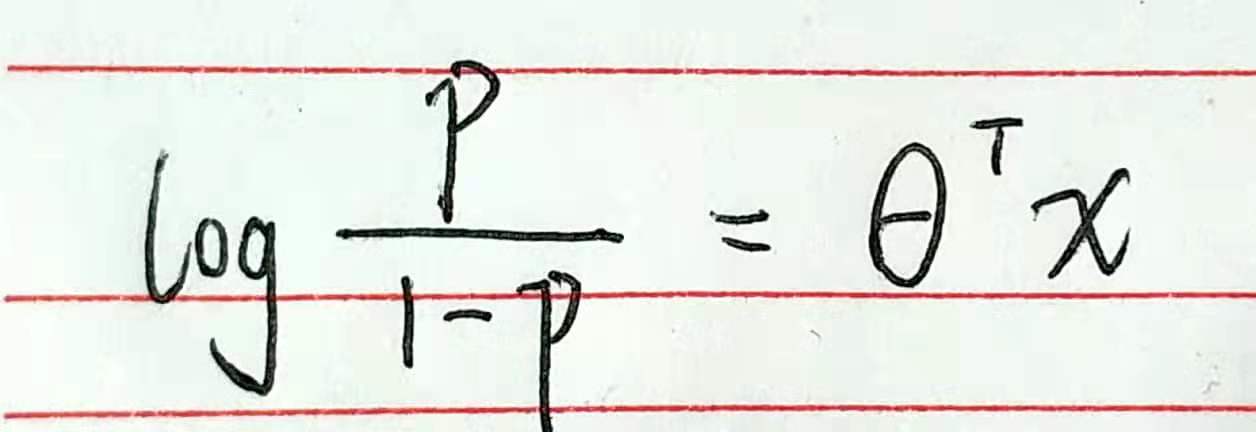 log p/(1-p) = θ^T x